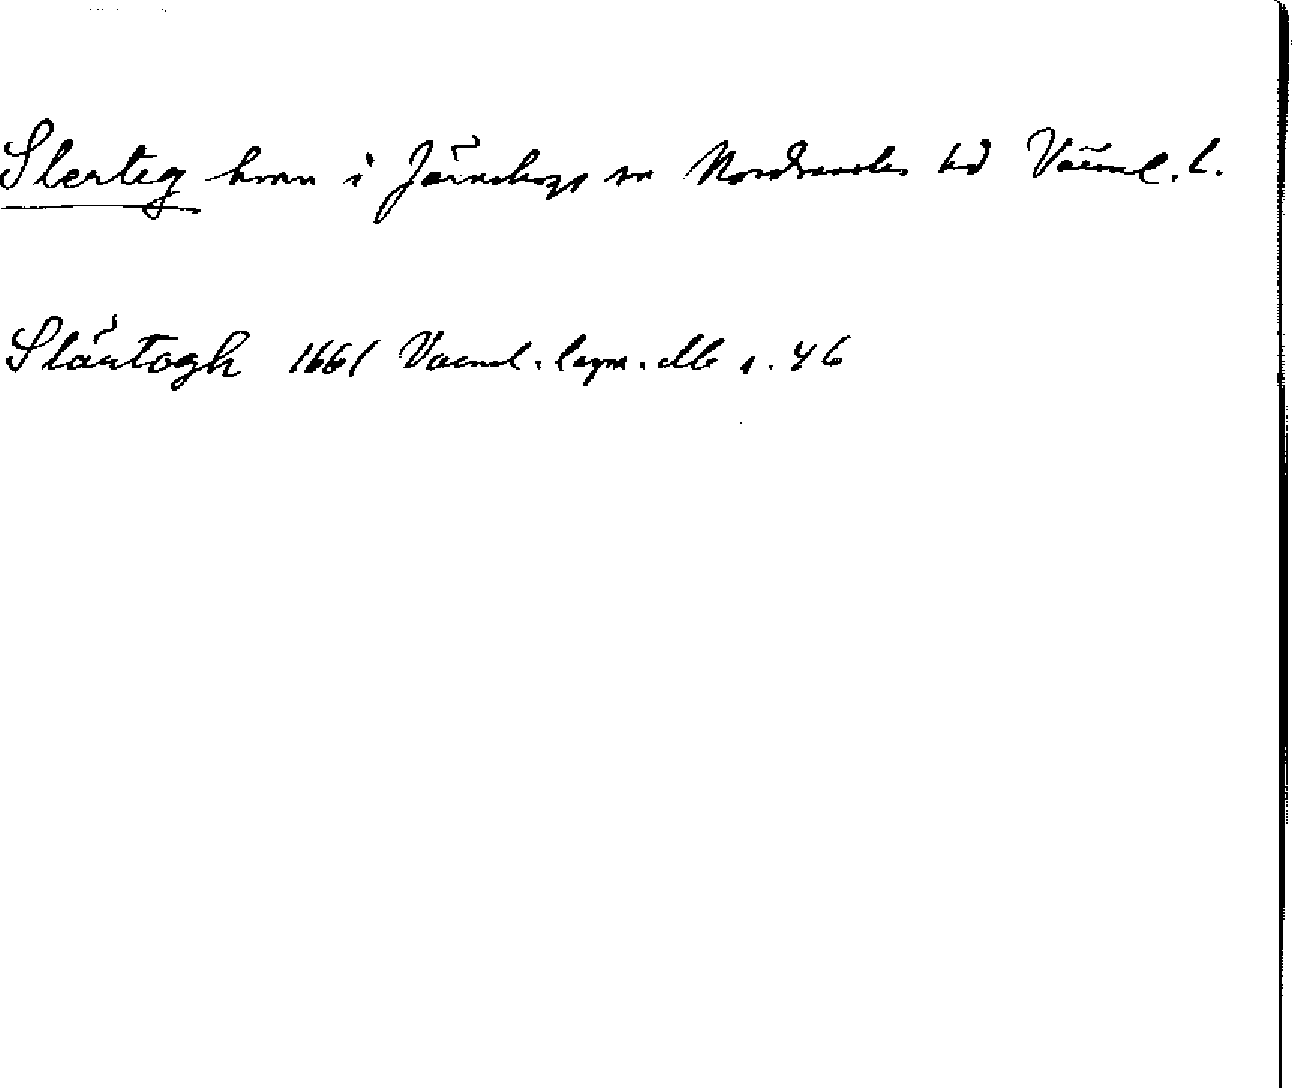 Slerteg hmn i Järnskogs sn Nordmarks hd Värml. l.
Slärtogh 1661 Vaerml. lagm. db s. 46